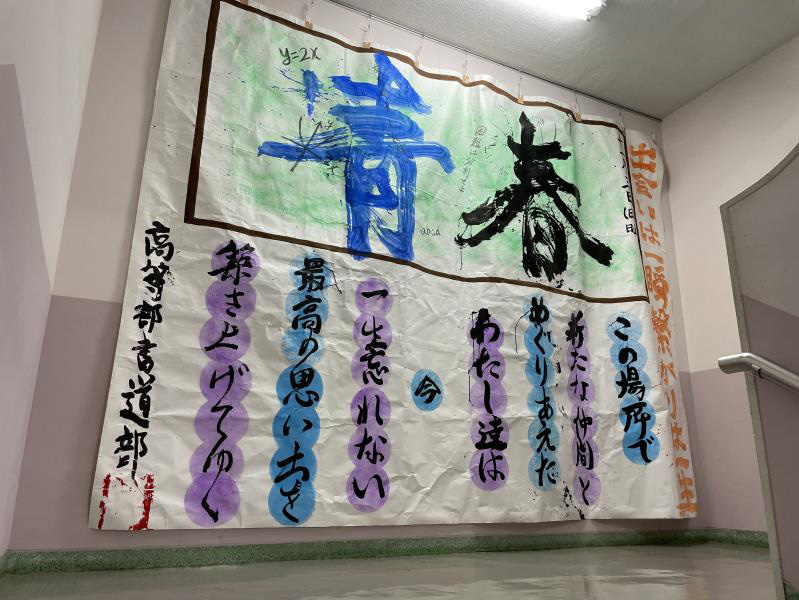 出会いは一瞬繋がりは一生
青春
y=2x
abcd
この場所で
新たな仲間と
めぐりあえた
わたし達は
今
一生忘れない
最高の思い出を
築き上げてゆく
高等部書道部